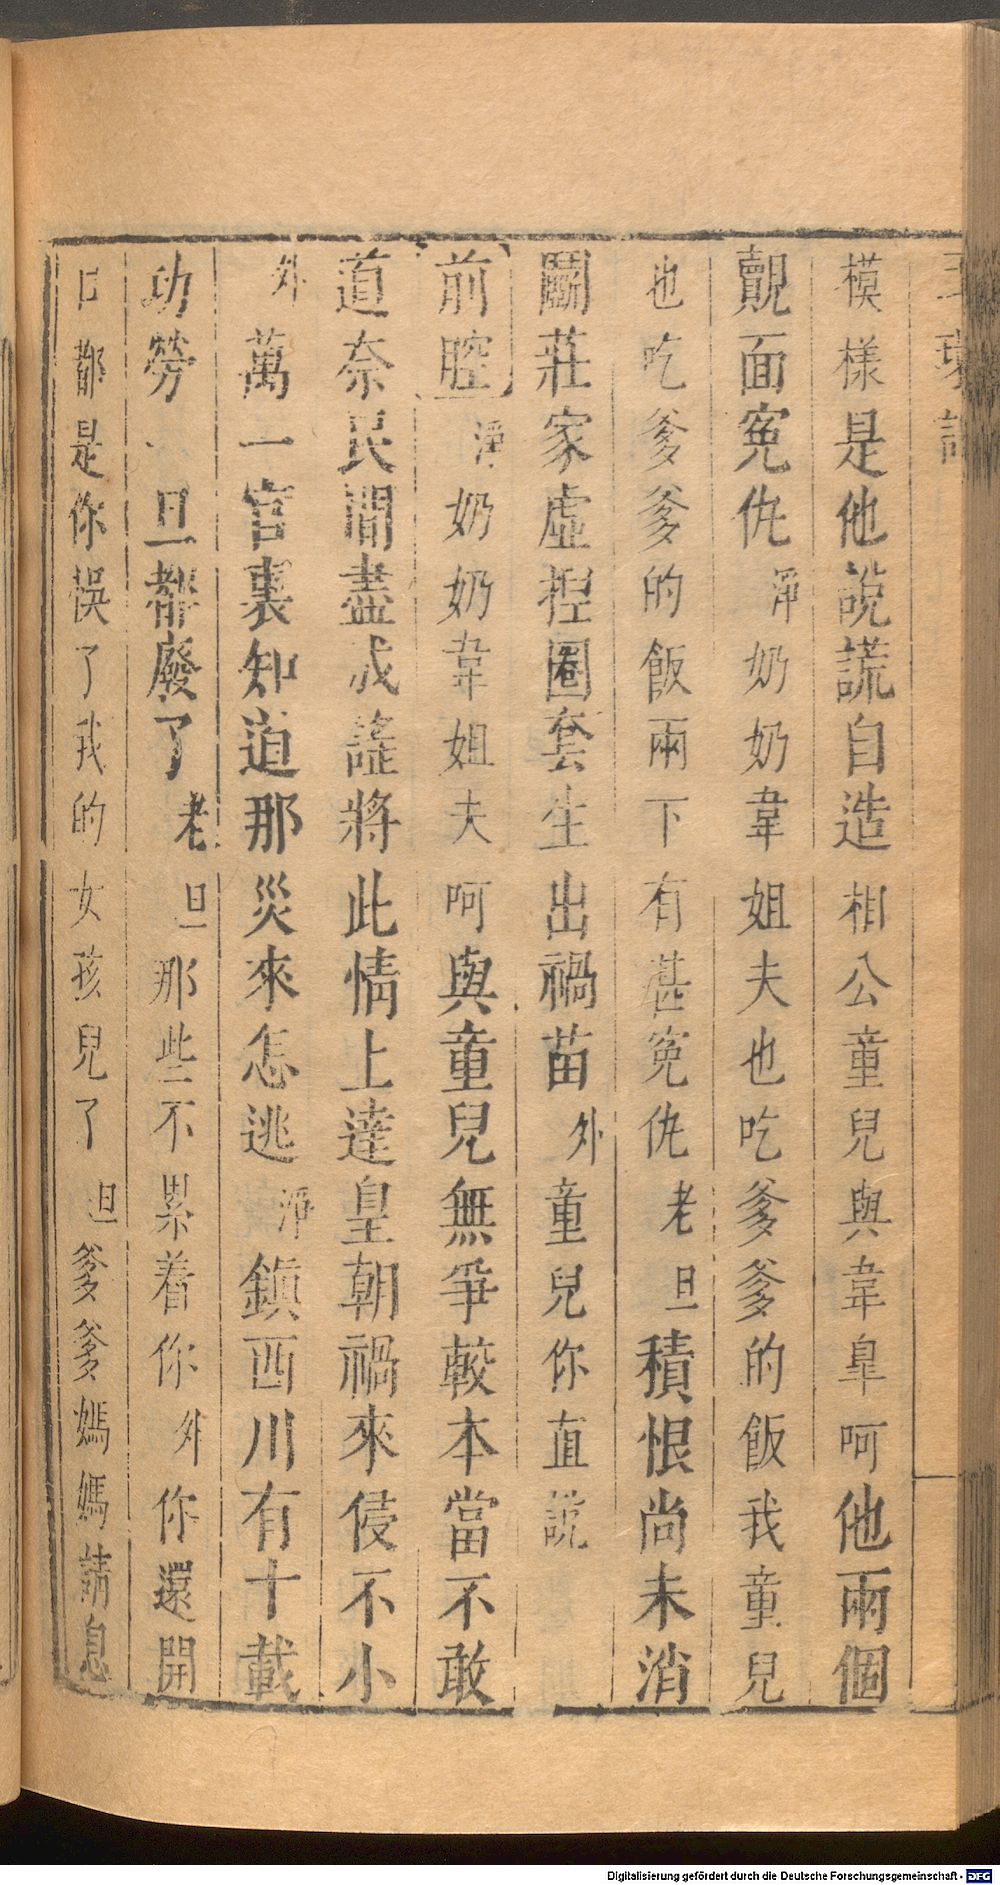 玉環記
模樣是他說謊自造相公童兒與韋皐呵他兩個
覿面寃仇淨奶奶韋姐夫也吃爹爹的飯我童兒
也吃爹爹的飯兩下有甚寃仇老旦積恨尚未消
鬭莊家虛揑圈套生出禍苗外童兒你直說
前腔淨奶奶韋姐夫呵與童兒無爭較本當不敢
道奈民間盡成謡將此情上達皇朝禍來侵不小
外萬一官裏知道那災來怎逃淨鎮西川有十載
功勞一旦都廢了老旦那些不累着你外你還開
口都是你悞了我的女孩兒了旦爹爹媽媽請息
Digitalisierung gefördert durch die Deutsche Forschungsgemeinschaft - DFG